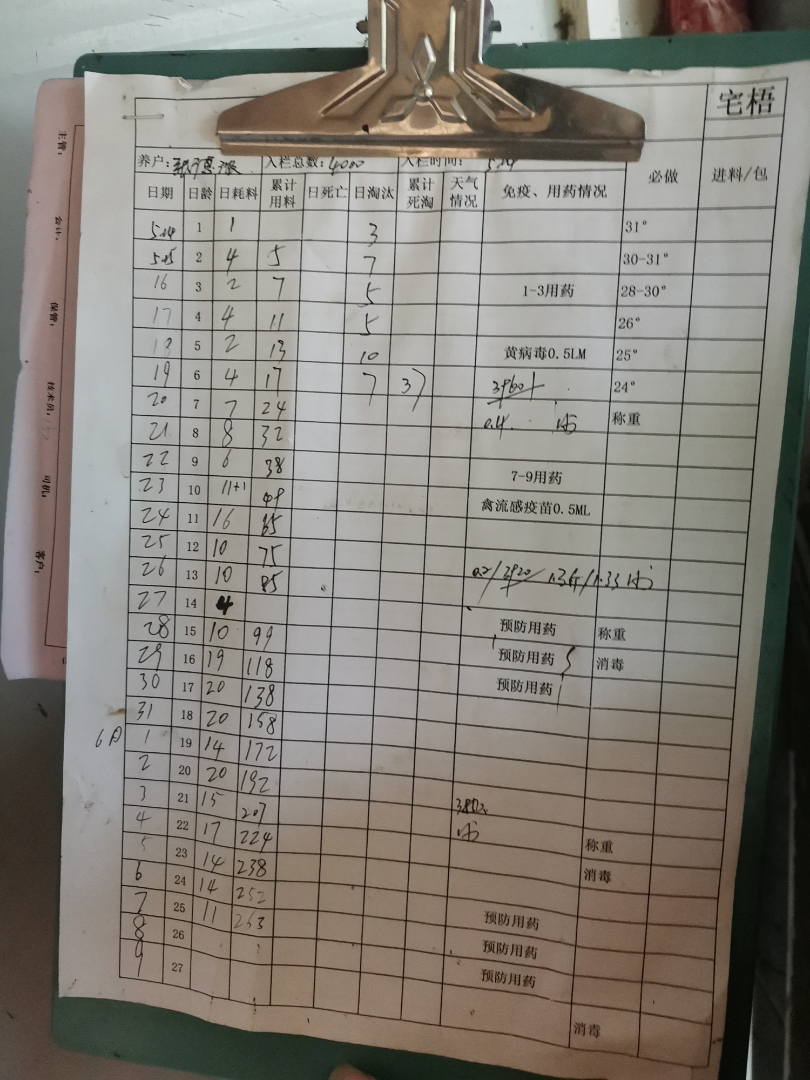 宅梧
养户: 入栏总数: 4000 入栏时间: 5.14
日期 日龄 日耗料 累计用料 日死亡 日淘汰 累计死淘 天气情况 免疫、用药情况 必做 进料/包
5.14 1 1 3 31°
5.15 2 4 5 7 30-31°
16 3 2 7 5 1-3用药 28-30°
17 4 4 11 5 26°
18 5 2 13 10 黄病毒0.5LM 25°
19 6 4 17 7 37 24°
20 7 7 24 称重
21 8 8 32
22 9 6 38 7-9用药
23 10 11+1 49 禽流感疫苗0.5ML
24 11 16 65
25 12 10 75
26 13 10 85
27 14 4
28 15 10 99 预防用药 称重
29 16 19 118 预防用药 消毒
30 17 20 138 预防用药
31 18 20 158
6月 1 19 14 172
2 20 20 192
3 21 15 207
4 22 17 224 称重
5 23 14 238 消毒
6 24 14 252
7 25 11 263 预防用药
8 26 预防用药
9 27 预防用药
消毒
主管:
会计:
保管:
技术员:
司机:
客户: